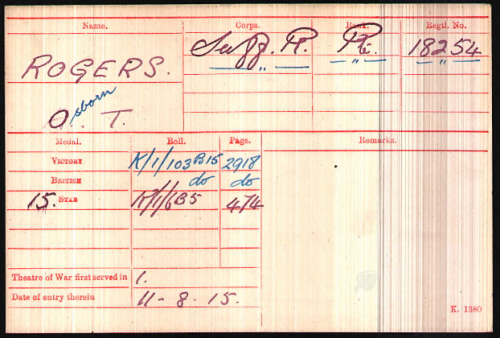 Name. Corps. Rank. Regtl. No.
ROGERS. Suff. R. Pte. 18254
" " "
Osborn T.
Medal. Roll. Page. Remarks.
VICTORY K/1/103B15 2918
BRITISH do do
15. STAR K/1/6B5 474
Theatre of War first served in 1.
Date of entry therein 11-8.15.
K. 1380